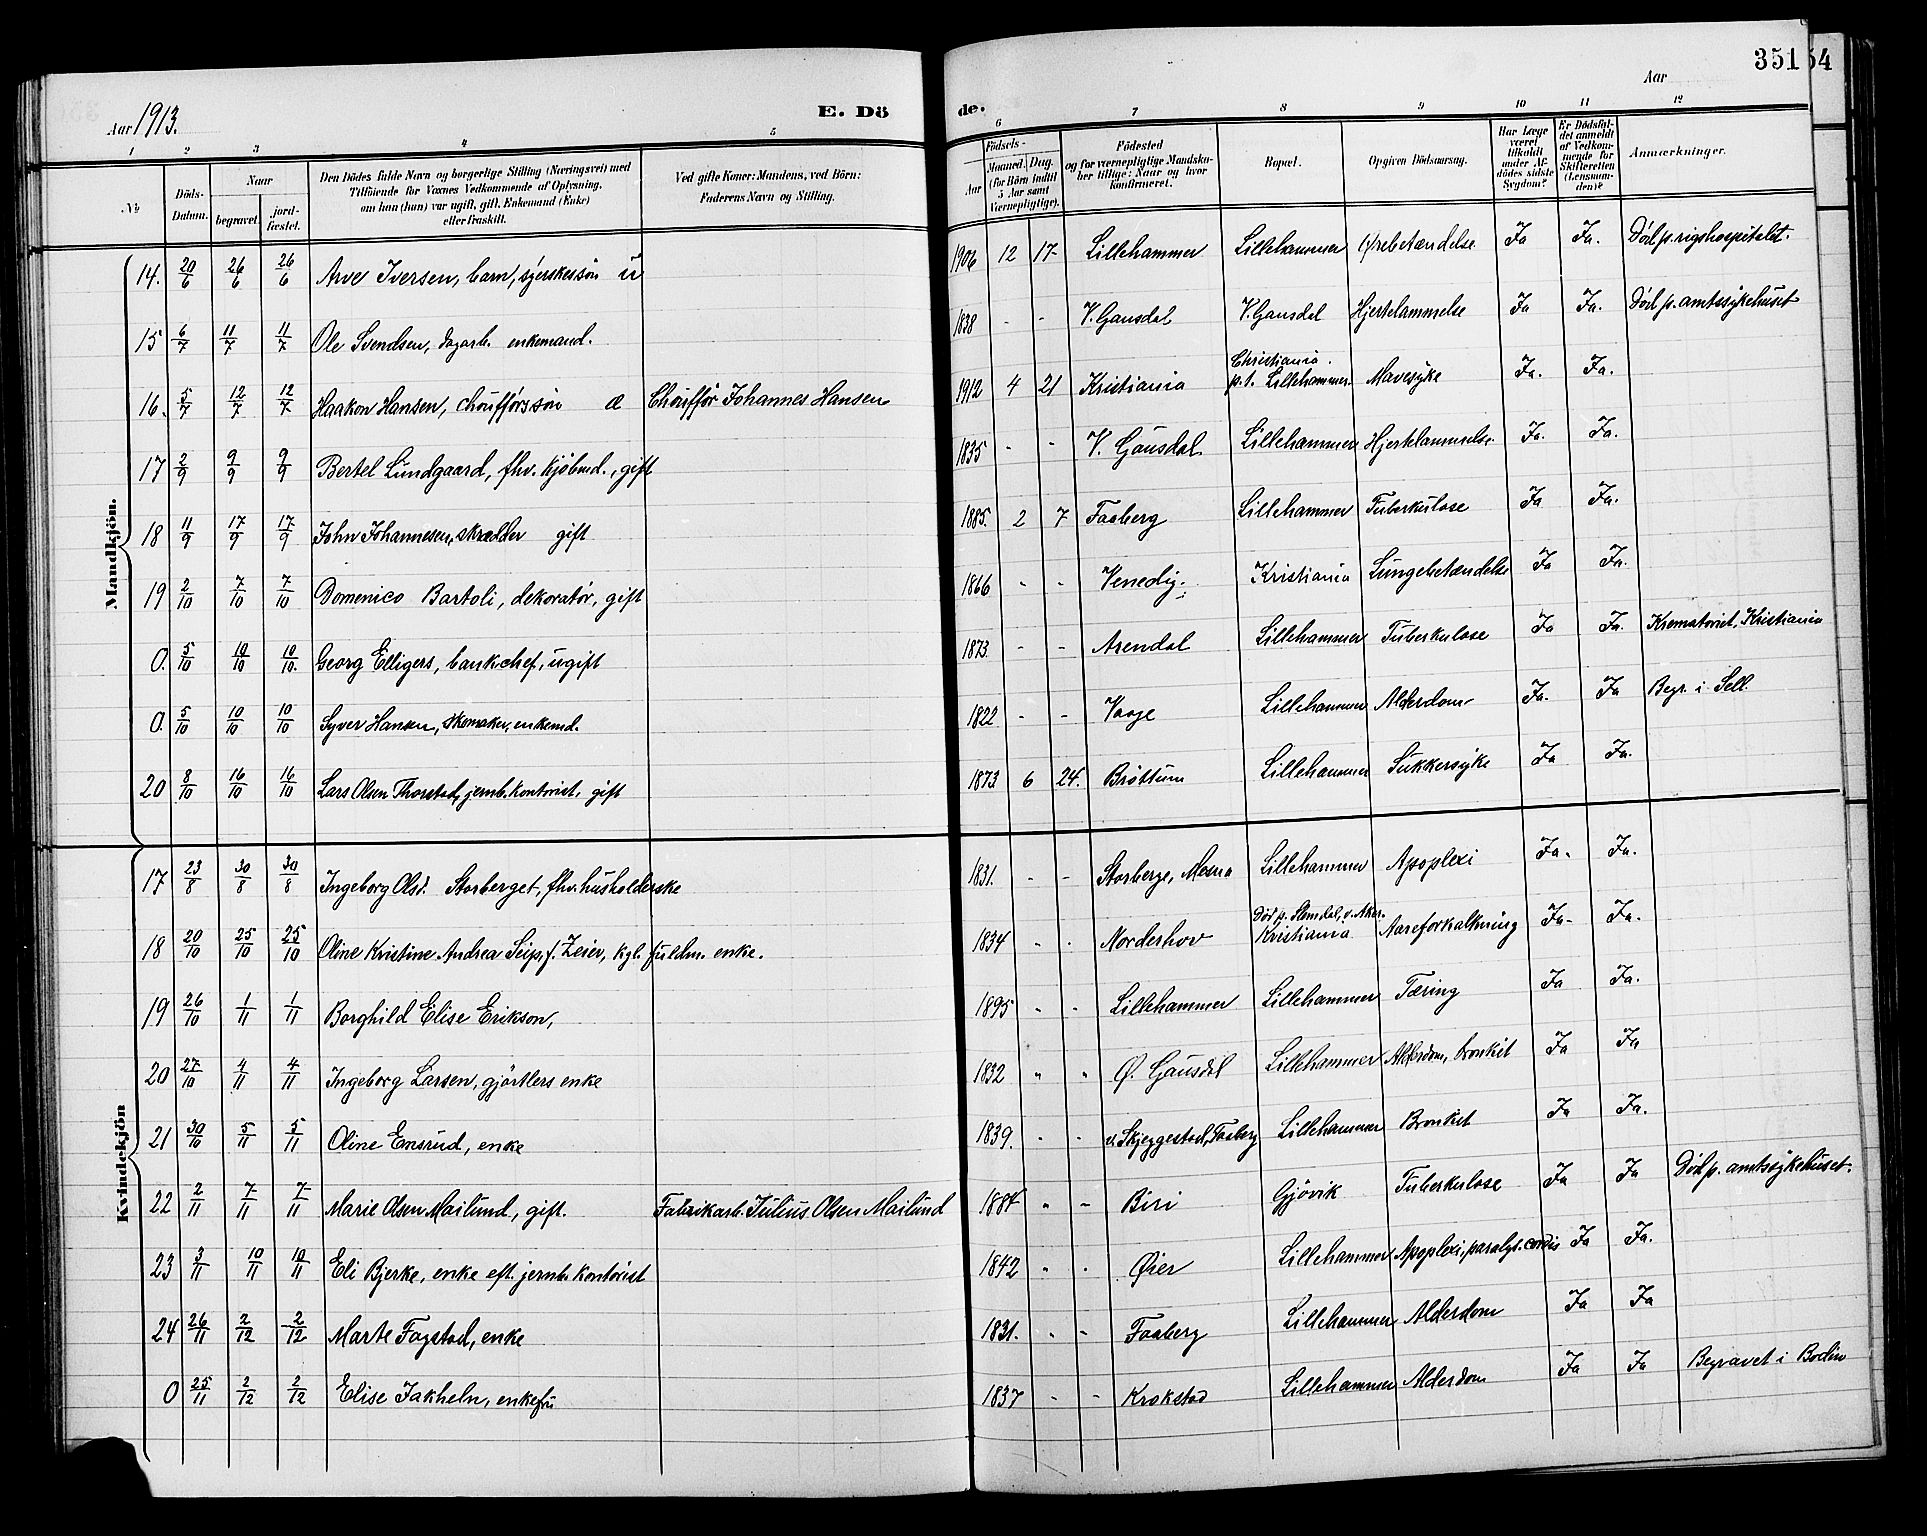 351 54
Aar 1913.
E. Dö
de.
Aar
1 2 3 4 5 6 7 8 9 10 11 12
№
Döds-Datum.
Naar
begravet.
jord-fæstet.
Den Dödes fulde Navn og borgerlige Stilling (Næringsvei) med
Tilföiende for Voxnes Vedkommende af Oplysning,
om han (hun) var ugift, gift, Enkemand (Enke)
eller fraskilt.
Ved gifte Koner: Mandens, ved Börn:
Faderens Navn og Stilling.
Födsels-
Aar
Maaned. Dag.
(for Börn indtil
5 Aar samt
Værnepligtige).
Födested
og for værnepligtige Mandska-
ber tillige: Naar og hvor
konfirmeret.
Bopæl.
Opgiven Dödsaarsag.
Har Læge
været
tilkaldt
under Af-
dödes sidste
Sygdom?
Er Dödsfal-
det anmeldt
af Vedkom-
mende for
Skifteretten
(Lensman-
den)?
Anmærkninger.
Mandkjön.
14. 20/6 26/6 26/6 Arve Iversen, barn, syerskes søn u 1906 12 17 Lillehammer Lillehammer Ørebetændelse Ja Ja. Død p. rigshospitalet.
15 6/7 11/7 11/7 Ole Svendsen, dagarb. enkemand. 1838 - - V. Gausdal V. Gausdal Hjertelammelse Ja Ja. Død p. amtssykehuset
16. 5/7 12/7 12/7 Haakon Hansen, choufførs søn æ Chouffør Johannes Hansen 1912 4 21 Kristiania Christiania. p.t. Lillehammer. Mavesyke Ja. Ja.
17 2/9 9/9 9/9 Bertel Lundgaard, fhv. kjøbmd., gift 1835 - - V. Gausdal Lillehammer Hjertelammelse. Ja. Ja.
18 11/9 17/9 17/9 John Johannesen, skrædder gift 1885. 2 7 Faaberg Lillehammer Tuberkulose Ja Ja.
19 2/10 7/10 7/10 Domenico Bartoli, dekoratør, gift 1866 - - Venedig. Kristiania Lungebetændelse Ja Ja.
0. 5/10 10/10 10/10. Georg Elligers, bankchef, ugift 1873. - - Arendal Lillehammer Tuberkulose Ja Ja. Krematoriet, Kristiania
0. 5/10 10/10 10/10 Syver Hansen, skomaker, enkemd. 1822 - - Vaage Lillehammer Alderdom Ja. Ja Begr. i Sell.
20 8/10 16/10 16/10 Lars Olsen Thorstad, jernb. kontorist, gift 1873 6 24. Brøttum Lillehammer Sukkersyke Ja Ja.
Kvindekjön
17 23/8 30/8 30/8 Ingeborg Olsd. Storberget, fhv. husholderske 1831. - - Storberge, Mesna Lillehammer Apoplexi Ja. Ja.
18 20/10 25/10 25/10 Oline Kristine Andrea Seip, f. Zeier, kgl. fuldm. enke. 1834 - - Norderhov Død p. v. Aker. Kristiania Aareforkalkning Ja- Ja.
19 26/10 1/11 1/11 Borghild Elise Erikson, 1895 - - Lillehammer Lillehammer Tæring Ja Ja.
20 27/10 4/11 4/11 Ingeborg Larsen, gjörtlers enke 1832 " " Ø. Gausdal Lillehammer Alderdom, bronkit Ja Ja
21 30/10 5/11 5/11 Oline Ensrud, enke 1839. - - v. Skjeggestad, Faaberg Lillehammer Bronkit Ja Ja.
22 2/11 7/11 7/11 Marie Olsen Mailund, gift. Fabrikarb. Julius Olsen Mailund 1884 " - Biri Gjøvik Tuberkulose Ja Ja Død p. amtssykehuset.
23 3/11 10/11 10/11 Eli Bjerke, enke eft. jernb. kontorist 1842 " - Øier Lillehammer Apoplexi, paralys. cordis Ja Ja.
24 26/11 2/12 2/12 Marte Fagstad, enke 1831. - - Faaberg Lillehammer Alderdom Ja Ja
0 25/11 2/12 2/12 Elise Jakheln, enkefru 1837 - - Krokstad Lillehammer Alderdom Ja Ja Begravet i Bodin